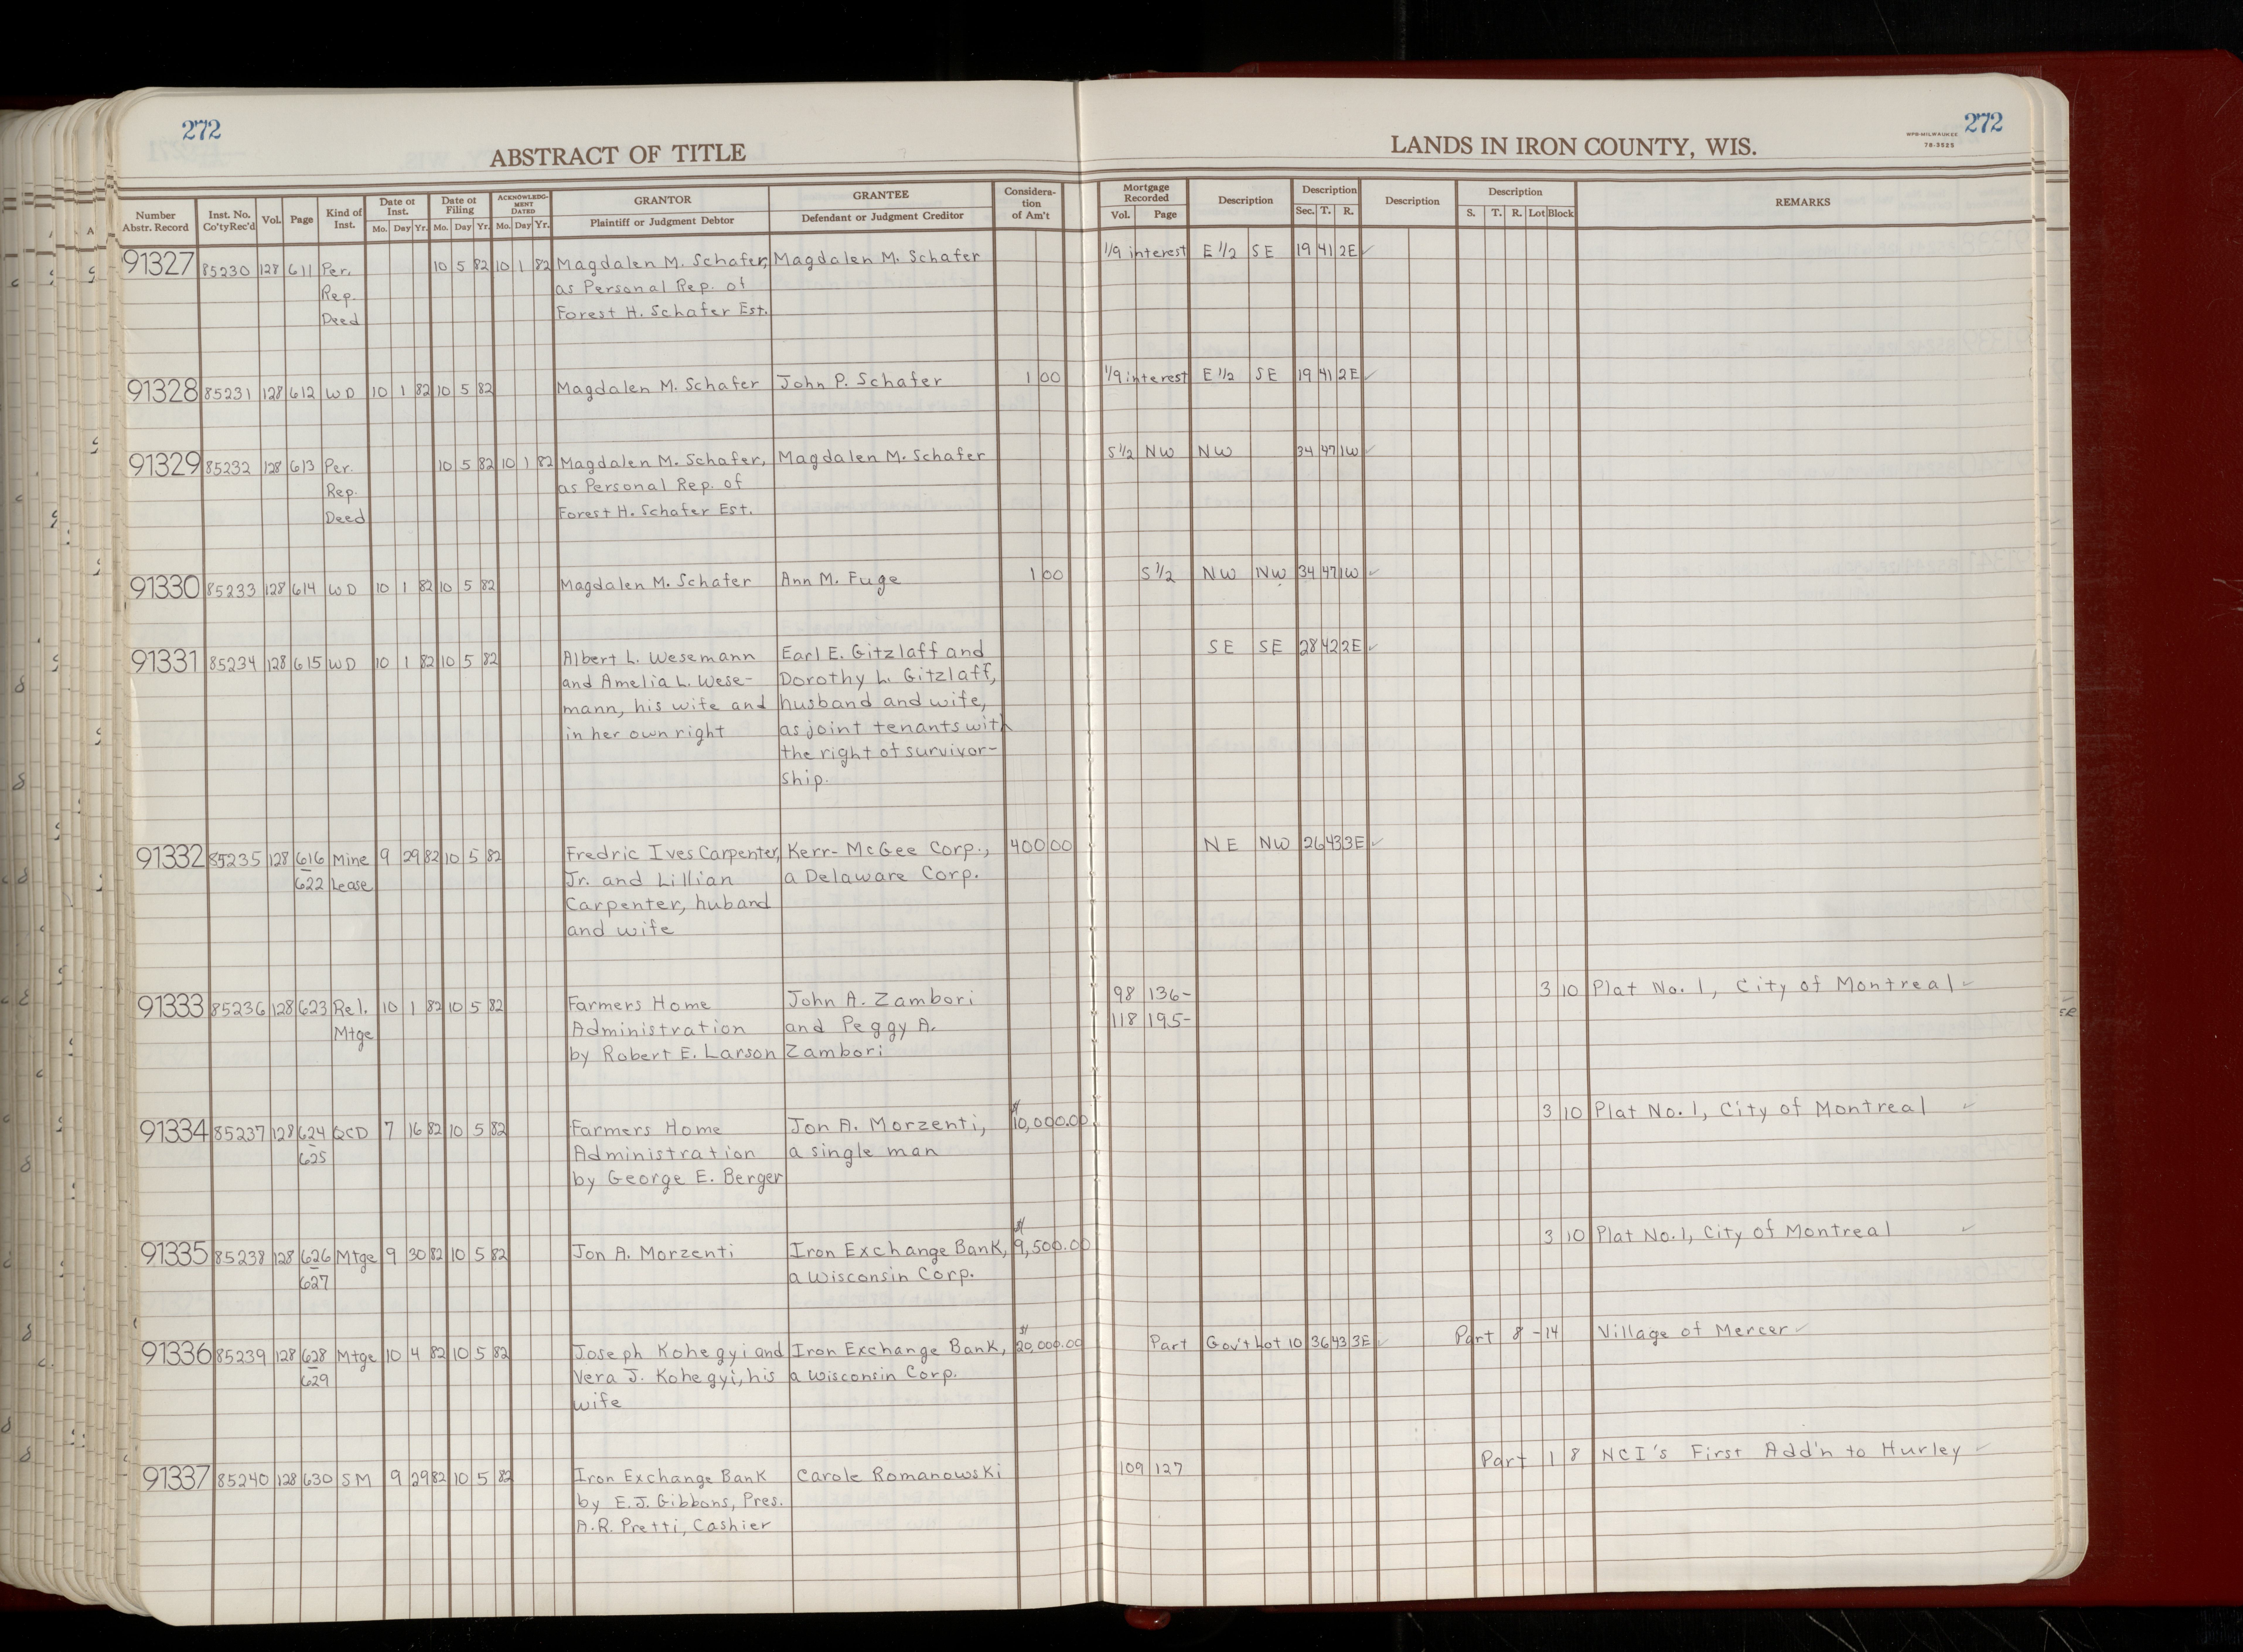 272
272
ABSTRACT OF TITLE
LANDS IN IRON COUNTY, WIS.
WPB-MILWAUKEE
78-3525
Number Abstr. Record Inst. No. Co'ty Rec'd Vol. Page Kind of Inst. Date of Inst. Mo. Day Yr. Date of Filing Mo. Day Yr. ACKNOWLEDG-MENT DATED Mo. Day Yr. GRANTOR Plaintiff or Judgment Debtor GRANTEE Defendant or Judgment Creditor Considera-tion of Am't Mortgage Recorded Vol. Page Description Description Sec. T. R. Description Description S. T. R. Lot Block REMARKS
91327 85230 128 611 Per. 10 5 82 10 1 82 Magdalen M. Schafer, Magdalen M. Schafer 1/9 interest E 1/2 SE 19 41 2E ✓
Rep. as Personal Rep. of
Deed Forest H. Schafer Est.
91328 85231 128 612 WD 10 1 82 10 5 82 Magdalen M. Schafer John P. Schafer 1 00 1/9 interest E 1/2 SE 19 41 2E ✓
91329 85232 128 613 Per. 10 5 82 10 1 82 Magdalen M. Schafer, Magdalen M. Schafer S 1/2 NW NW 34 47 1W ✓
Rep. as Personal Rep. of
Deed Forest H. Schafer Est.
91330 85233 128 614 WD 10 1 82 10 5 82 Magdalen M. Schafer Ann M. Fuge 1 00 S 1/2 NW NW 34 47 1W ✓
91331 85234 128 615 WD 10 1 82 10 5 82 Albert L. Wesemann Earl E. Gitzlaff and SE SE 28 42 2E ✓
and Amelia L. Wese- Dorothy L. Gitzlaff,
mann, his wife and husband and wife,
in her own right as joint tenants with
the right of survivor-
ship.
91332 85235 128 616 Mine 9 29 82 10 5 82 Fredric Ives Carpenter, Kerr-McGee Corp., 400 00 NE NW 26 43 3E ✓
622 Lease Jr. and Lillian a Delaware Corp.
Carpenter, huband
and wife
91333 85236 128 623 Rel. 10 1 82 10 5 82 Farmers Home John A. Zambori 98 136- 3 10 Plat No. 1, City of Montreal ✓
Mtge Administration and Peggy A. 118 195-
by Robert E. Larson Zambori
91334 85237 128 624 QCD 7 16 82 10 5 82 Farmers Home Jon A. Morzenti, $10,000.00 3 10 Plat No. 1, City of Montreal ✓
625 Administration a single man
by George E. Berger
91335 85238 128 626 Mtge 9 30 82 10 5 82 Jon A. Morzenti Iron Exchange Bank, $9,500.00 3 10 Plat No. 1, City of Montreal ✓
627 a Wisconsin Corp.
91336 85239 128 628 Mtge 10 4 82 10 5 82 Joseph Kohegyi and Iron Exchange Bank, $20,000.00 Part Gov't Lot 10 36 43 3E ✓ Part 8 -14 Village of Mercer ✓
629 Vera J. Kohegyi, his a Wisconsin Corp.
wife
91337 85240 128 630 SM 9 29 82 10 5 82 Iron Exchange Bank Carole Romanowski 109 127 Part 1 8 NCI's First Add'n to Hurley ✓
by E.J. Gibbons, Pres.
A.R. Pretti, Cashier